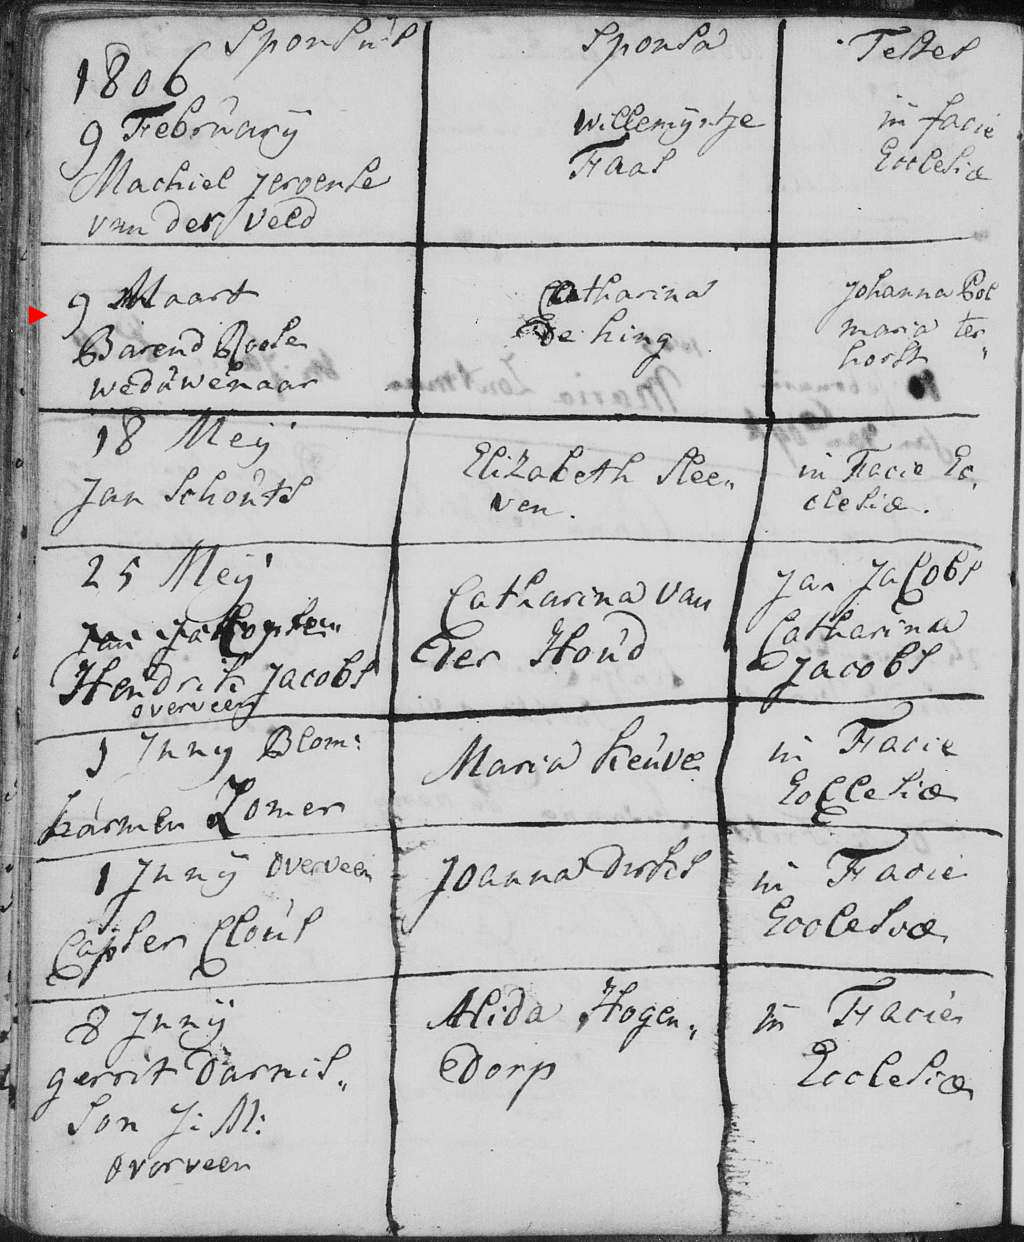 Sponsus Sponsa Testes
1806
9 February
Machiel Jeroense
van der Veld
Willemyntje
Haas
in facie
Ecclesiæ
9 Maart
Barend Roose
weduwenaar
Catharina
de King
Johanna Bol
maria ter„
horst
18 Meÿ
Jan Schouts
Elizabeth Slee„
ven.
in Facie Ec„
clesiæ.
25 Meÿ
Hendrik Jacobs
overveen
Catharina van
der Houd
Jan Jacobs
Catharina
Jacobs
1 Juny Blom:
harmen Zomer
Maria Keuve
in Facie
Ecclesiæ
1 Junÿ overveen
Casper Clous
Joanna Dirkes
in Facie
Ecclesiæ
8 Junÿ
gerrit Darnis„
son J: M:
overveen
Alida Hogen„
dorp
in Facie
Ecclesiæ